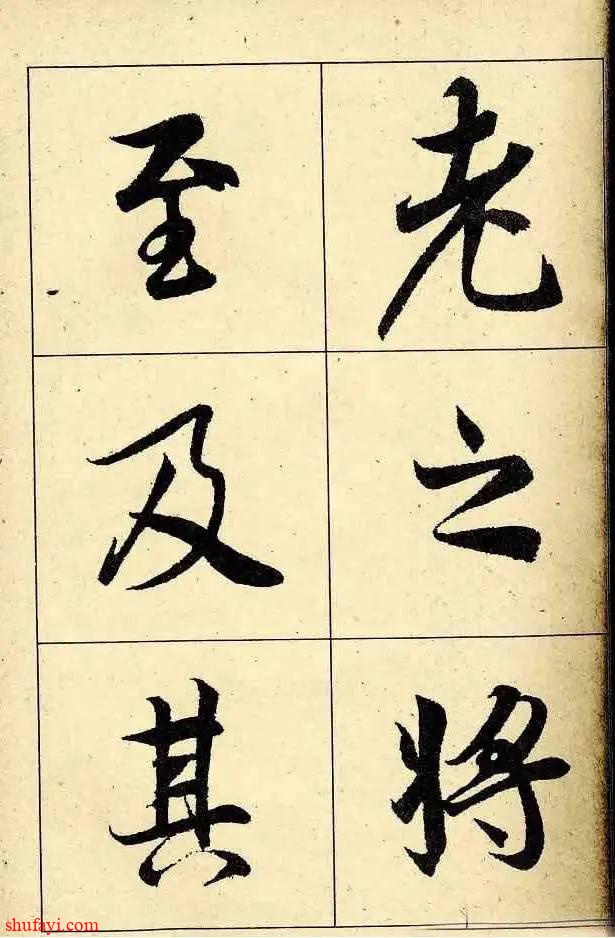 老之將
至及其
shufayi.com